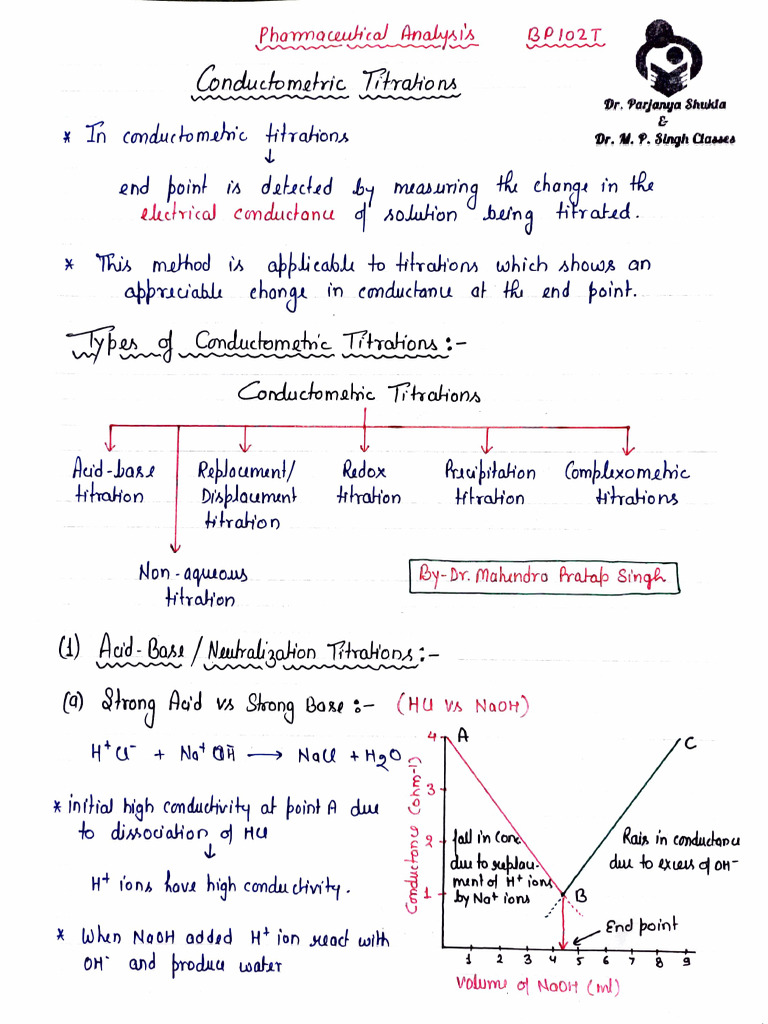 Pharmaceutical Analysis BP102T
Conductometric Titrations
Dr. Parjanya Shukla
&
Dr. M. P. Singh Classes
* In conductometric titrations
↓
end point is detected by measuring the change in the
electrical conductance of solution being titrated.
* This method is applicable to titrations which shows an
appreciable change in conductance at the end point.
Types of Conductometric Titrations:-
Conductometric Titrations
Acid-base
titration
Replacment/
Displacment
titration
Redox
titration
Precipitation
titration
Complexometric
titrations
Non-aqueous
titration
By-Dr. Mahendra Pratap Singh
(1) Acid-Base/Neutralization Titrations:-
(a) Strong Acid vs Strong Base:- (HCl vs NaOH)
H⁺Cl⁻ + Na⁺OH⁻ → NaCl + H₂O
* initial high conductivity at point A due
to dissociation of HCl
↓
H⁺ ions have high conductivity.
* When NaOH added H⁺ ion react with
OH⁻ and produce water
Conductance (ohm-1)
4
3
2
1
A
C
B
fall in Conc
due to replac-
ment of H⁺ ions
by Na⁺ ions
Rais in conductance
due to excess of OH⁻
End point
1 2 3 4 5 6 7 8 9
Volume of NaOH (ml)